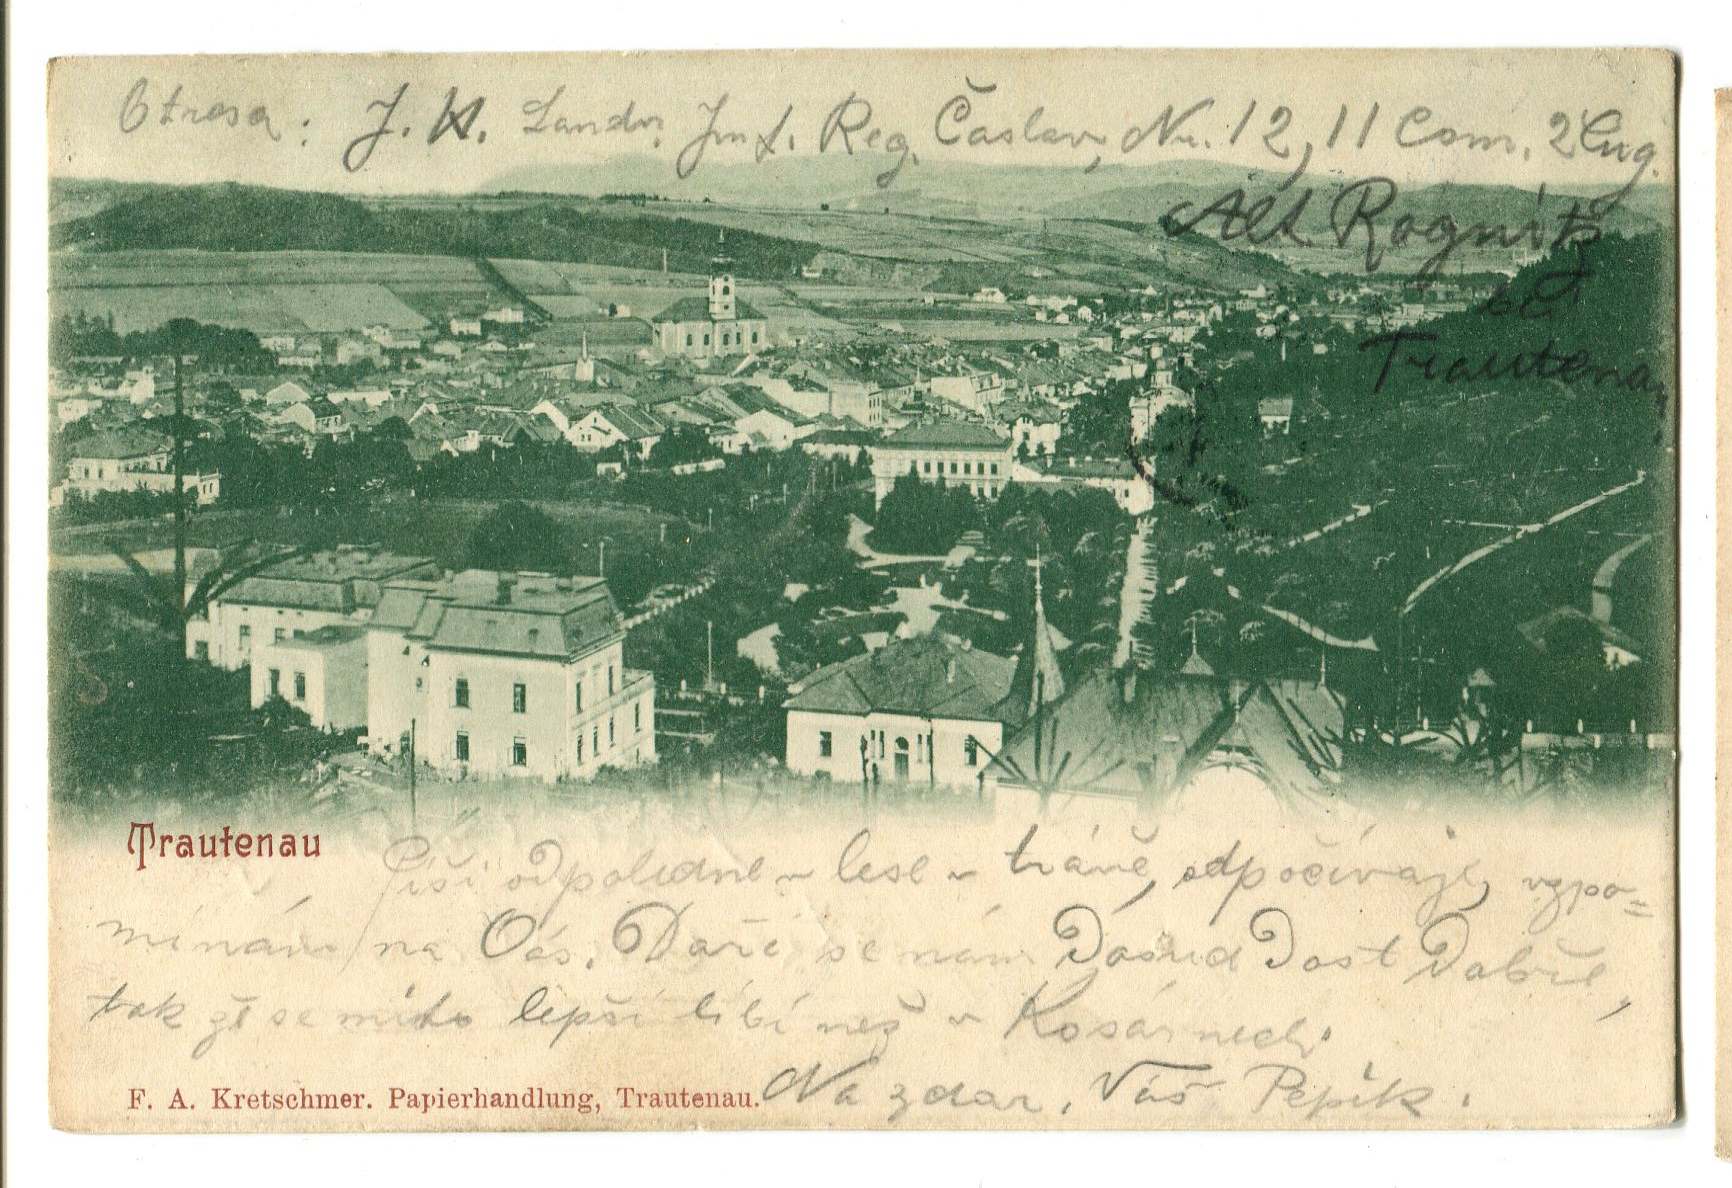 Otresa: J. K. Landw. Inf. Reg. Časlav, Nr. 12, 11 Com. 2 Cug.
Alt Rognitz
bei
Trautenau
Trautenau
Píši odpoledne v lese v trávě, odpočívaje, vzpo=
mínám na Vás. Daří se nám Dosud Dost Dobře,
tak že se mi to lepší líbí než v Kasárnech.
Na zdar, Váš Pepík.
F. A. Kretschmer. Papierhandlung, Trautenau.